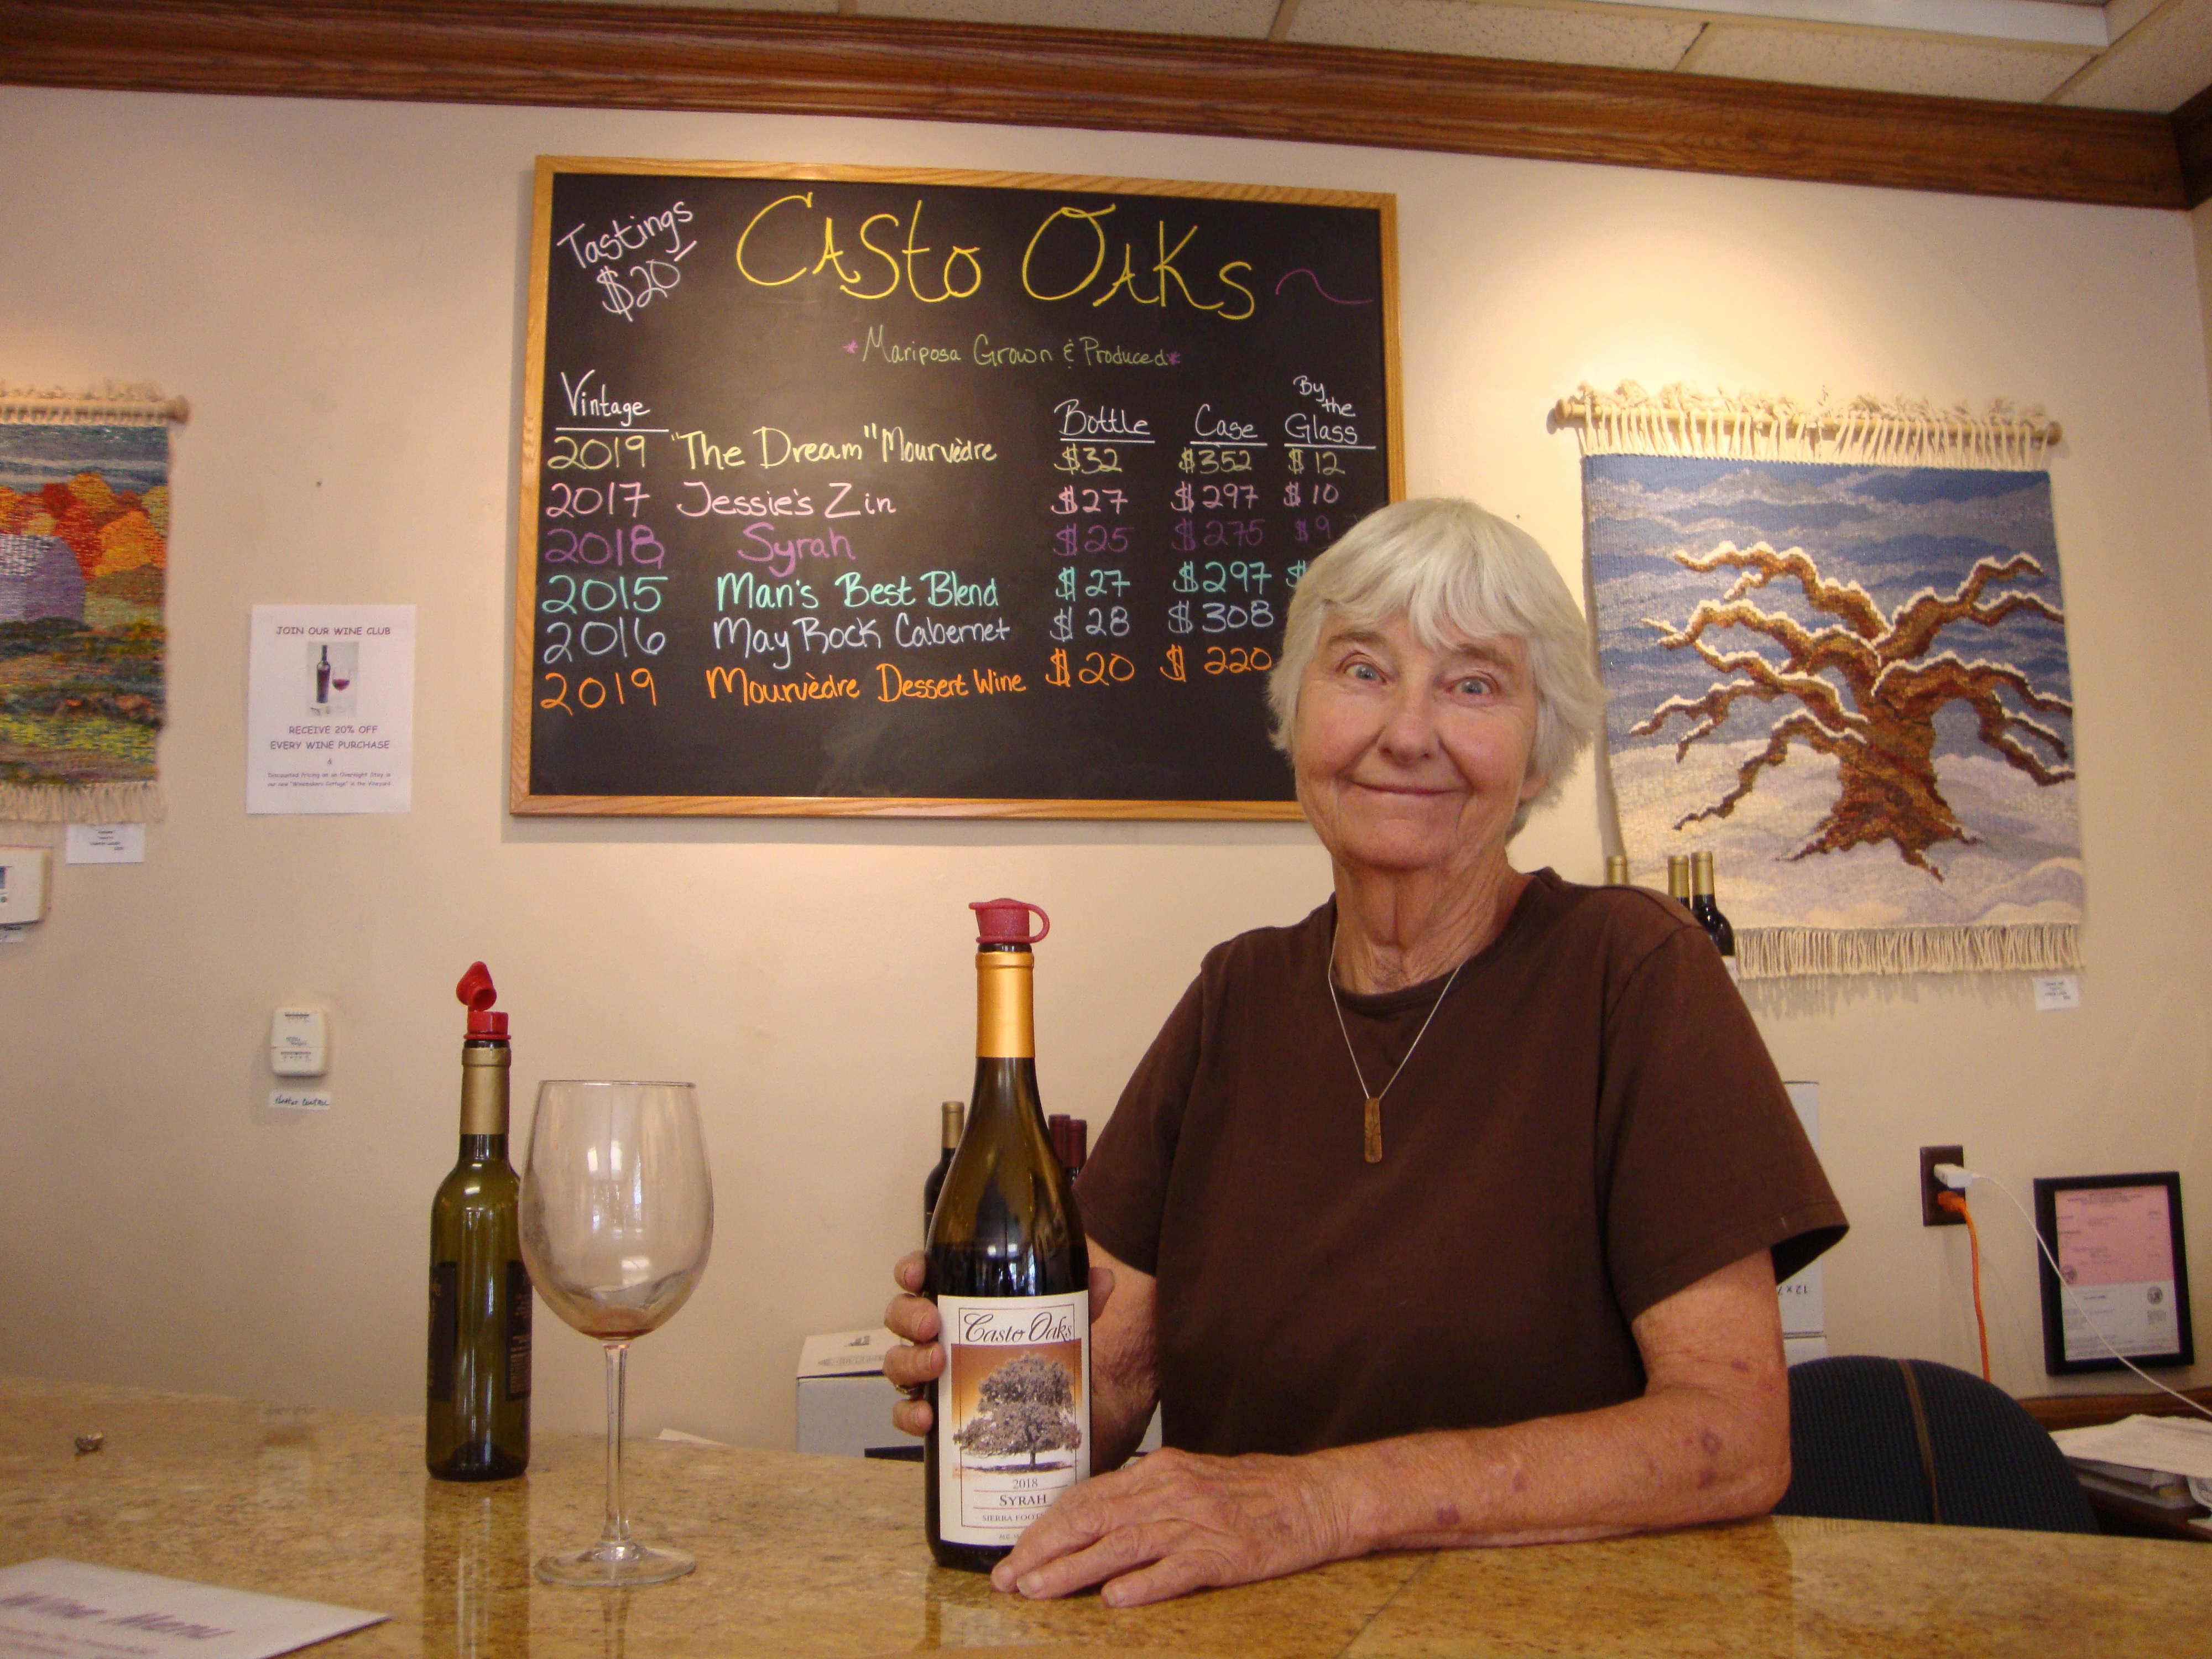 Tastings
$20
CASto OAKs
*Mariposa Grown & Produced*
Vintage Bottle Case By the Glass
2019 "The Dream" Mourvèdre $32 $352 $12
2017 Jessie's Zin $27 $297 $10
2018 Syrah $25 $275 $9
2015 Man's Best Blend $27 $297 $
2016 May Rock Cabernet $28 $308
2019 Mourvèdre Dessert Wine $20 $220
JOIN OUR WINE CLUB
RECEIVE 20% OFF
EVERY WINE PURCHASE
&
Discounted Pricing on an Overnight Stay in
our new "Winemakers Cottage" in the Vineyard
Casto Oaks
2018
SYRAH
SIERRA FOOT
Wine Menu